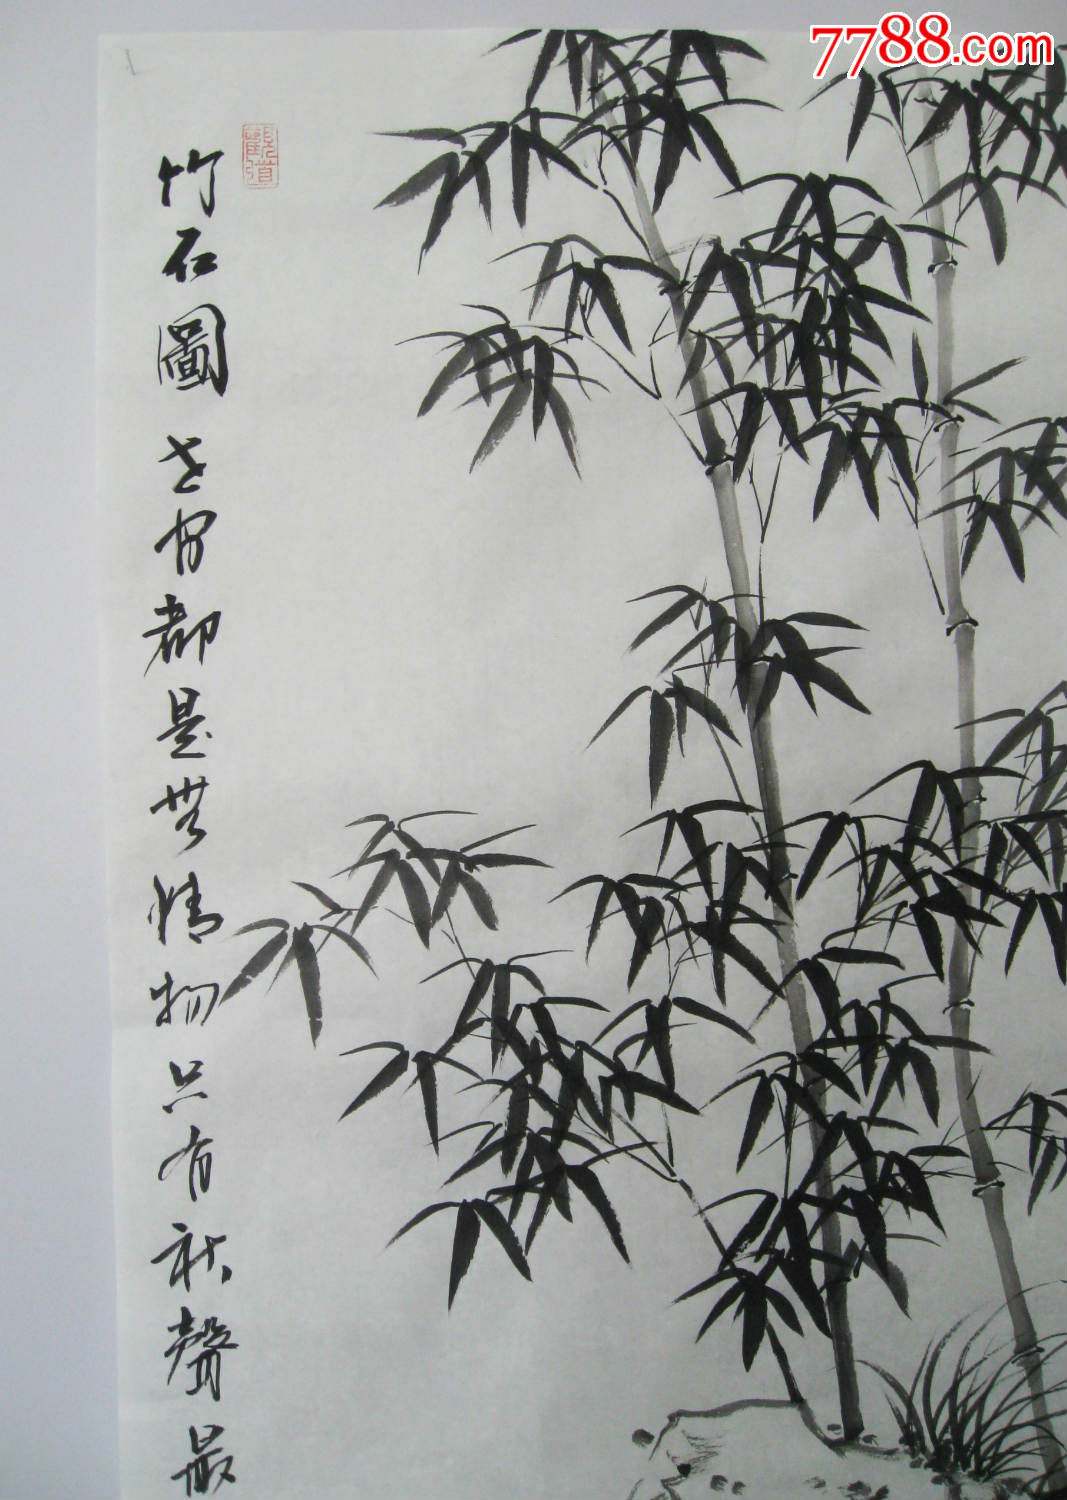 7788.com
竹石圖世間都是無情物只有秋聲最